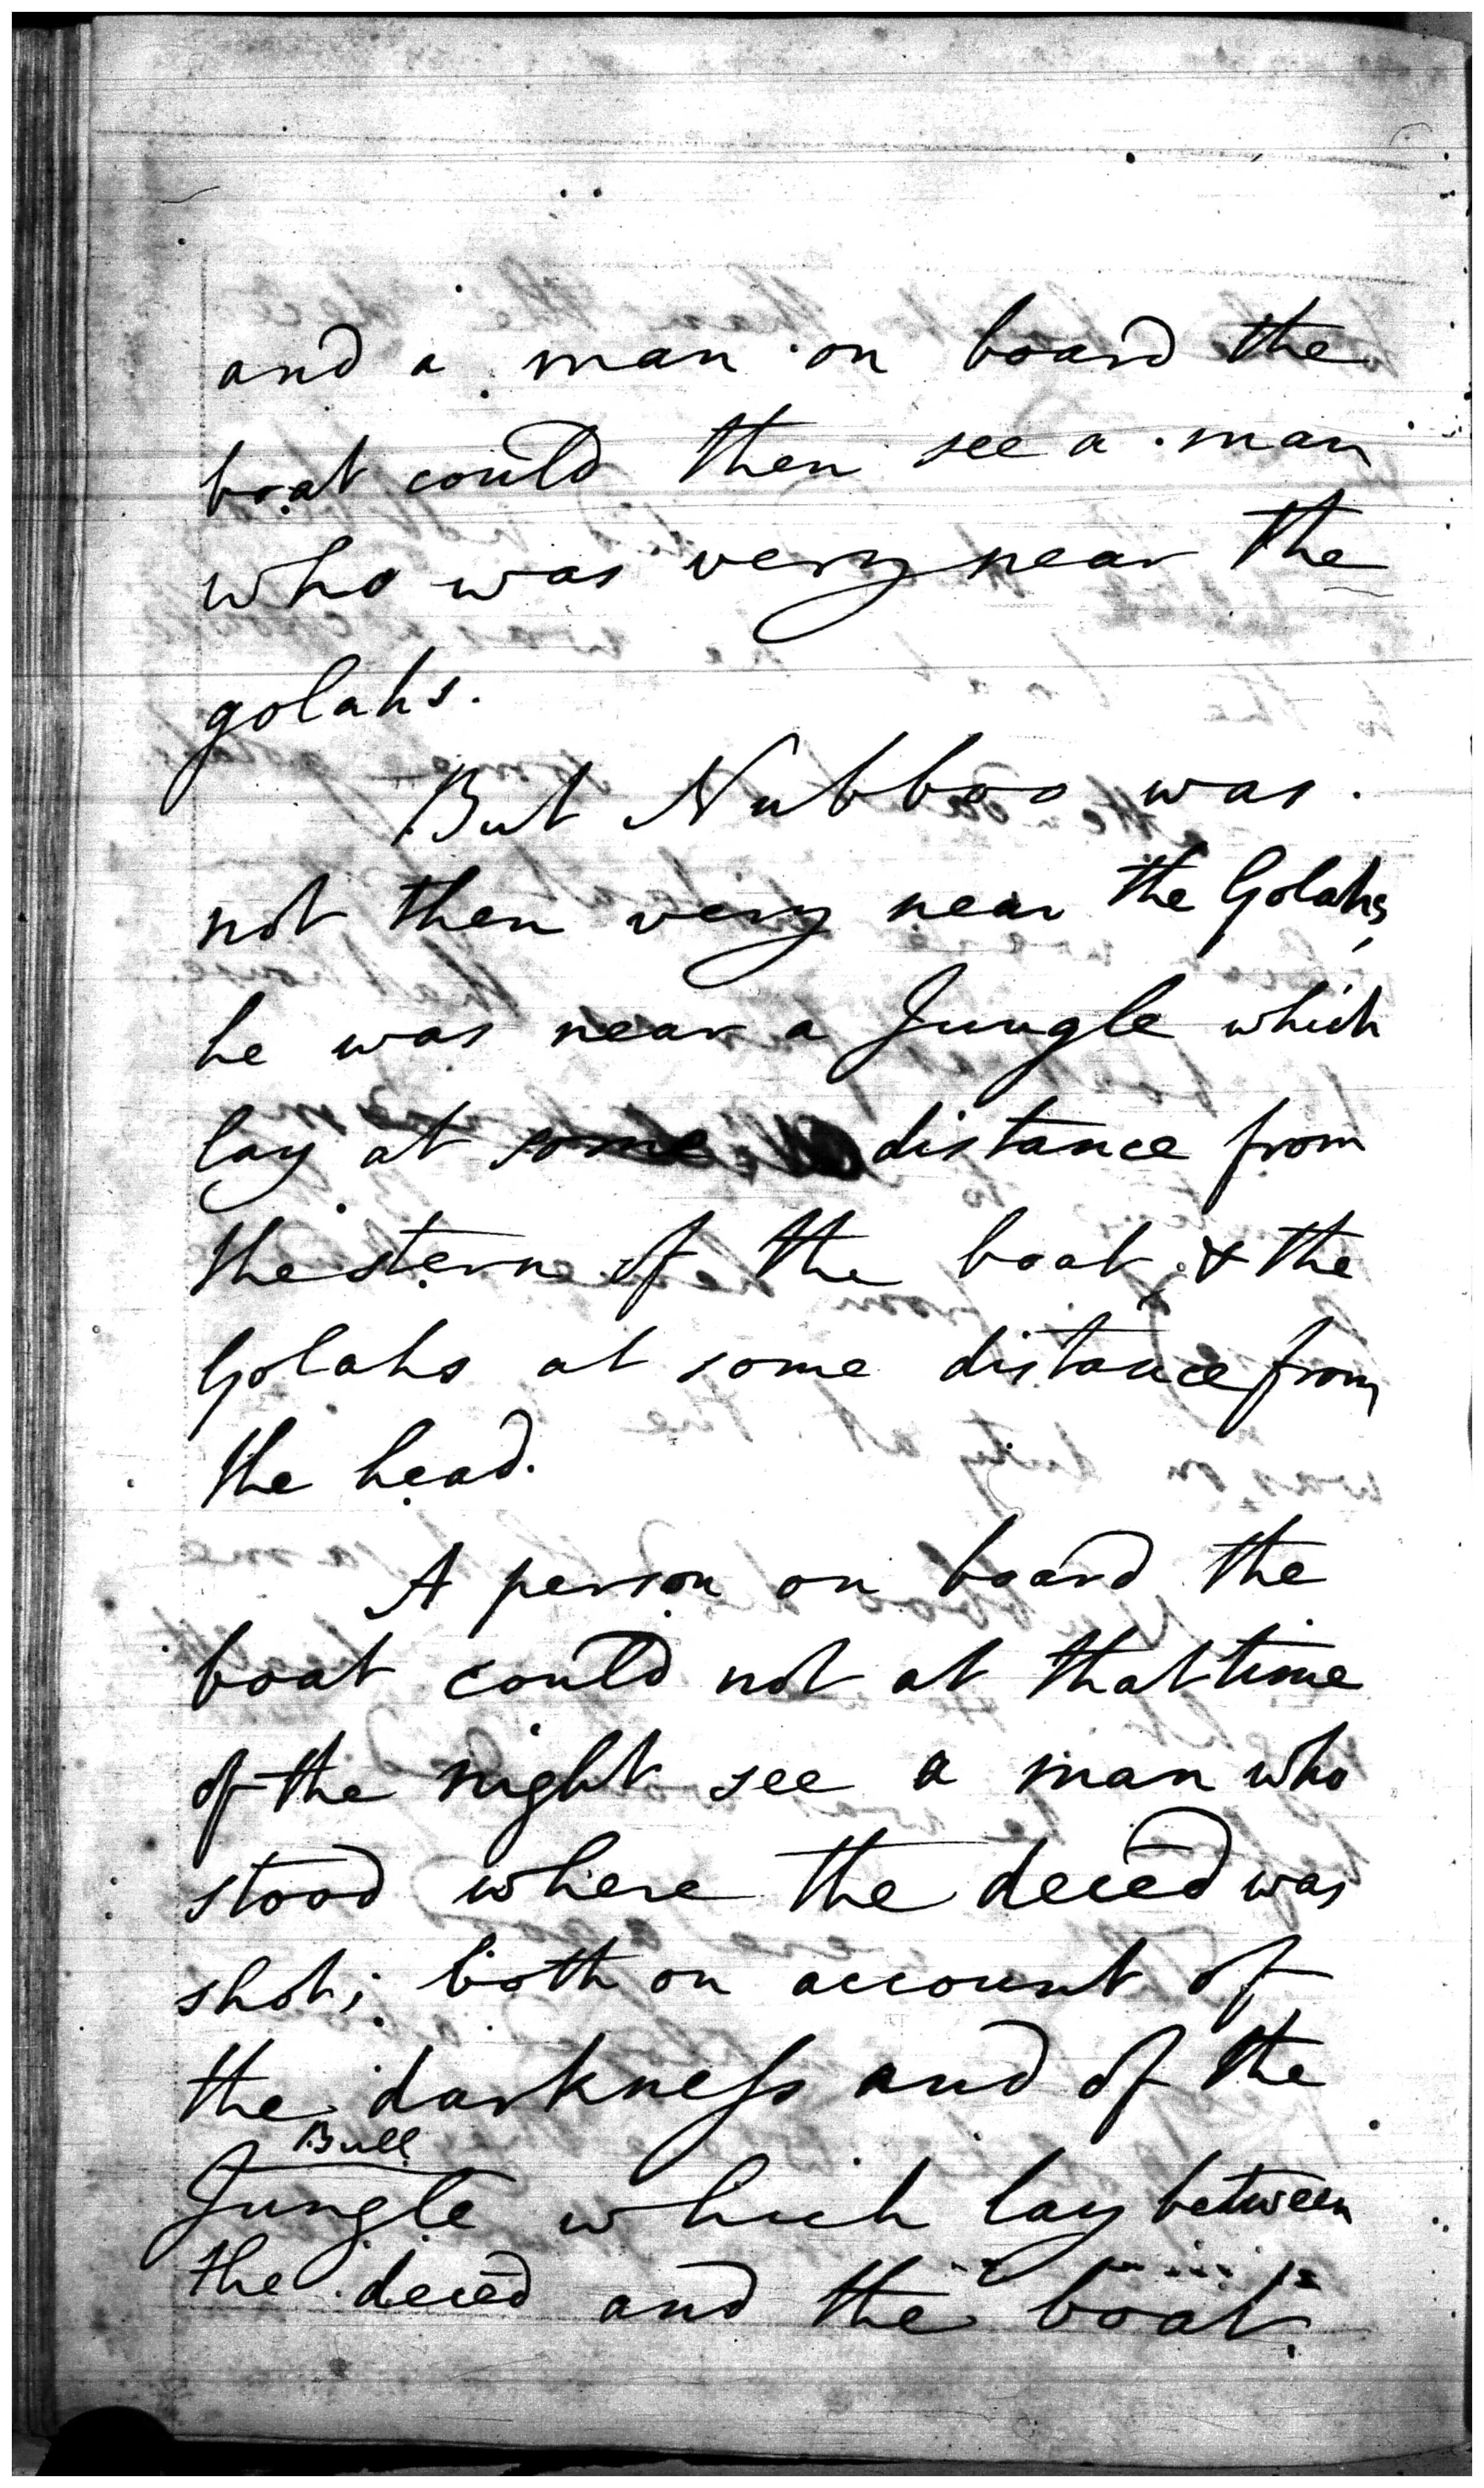 and a man on board the
boat could then see a man
who was very near the
golahs.
But Nubboo was
not then very near the Golahs,
he was near a Jungle which
lay at some distance from
the stern of the boat, & the
Golahs at some distance from
the head.
A person on board the
boat could not at that time
of the night see a man who
stood where the deced was
shot; both on account of
the darkness and of the
Bull
Jungle which lay between
the deced and the boat.